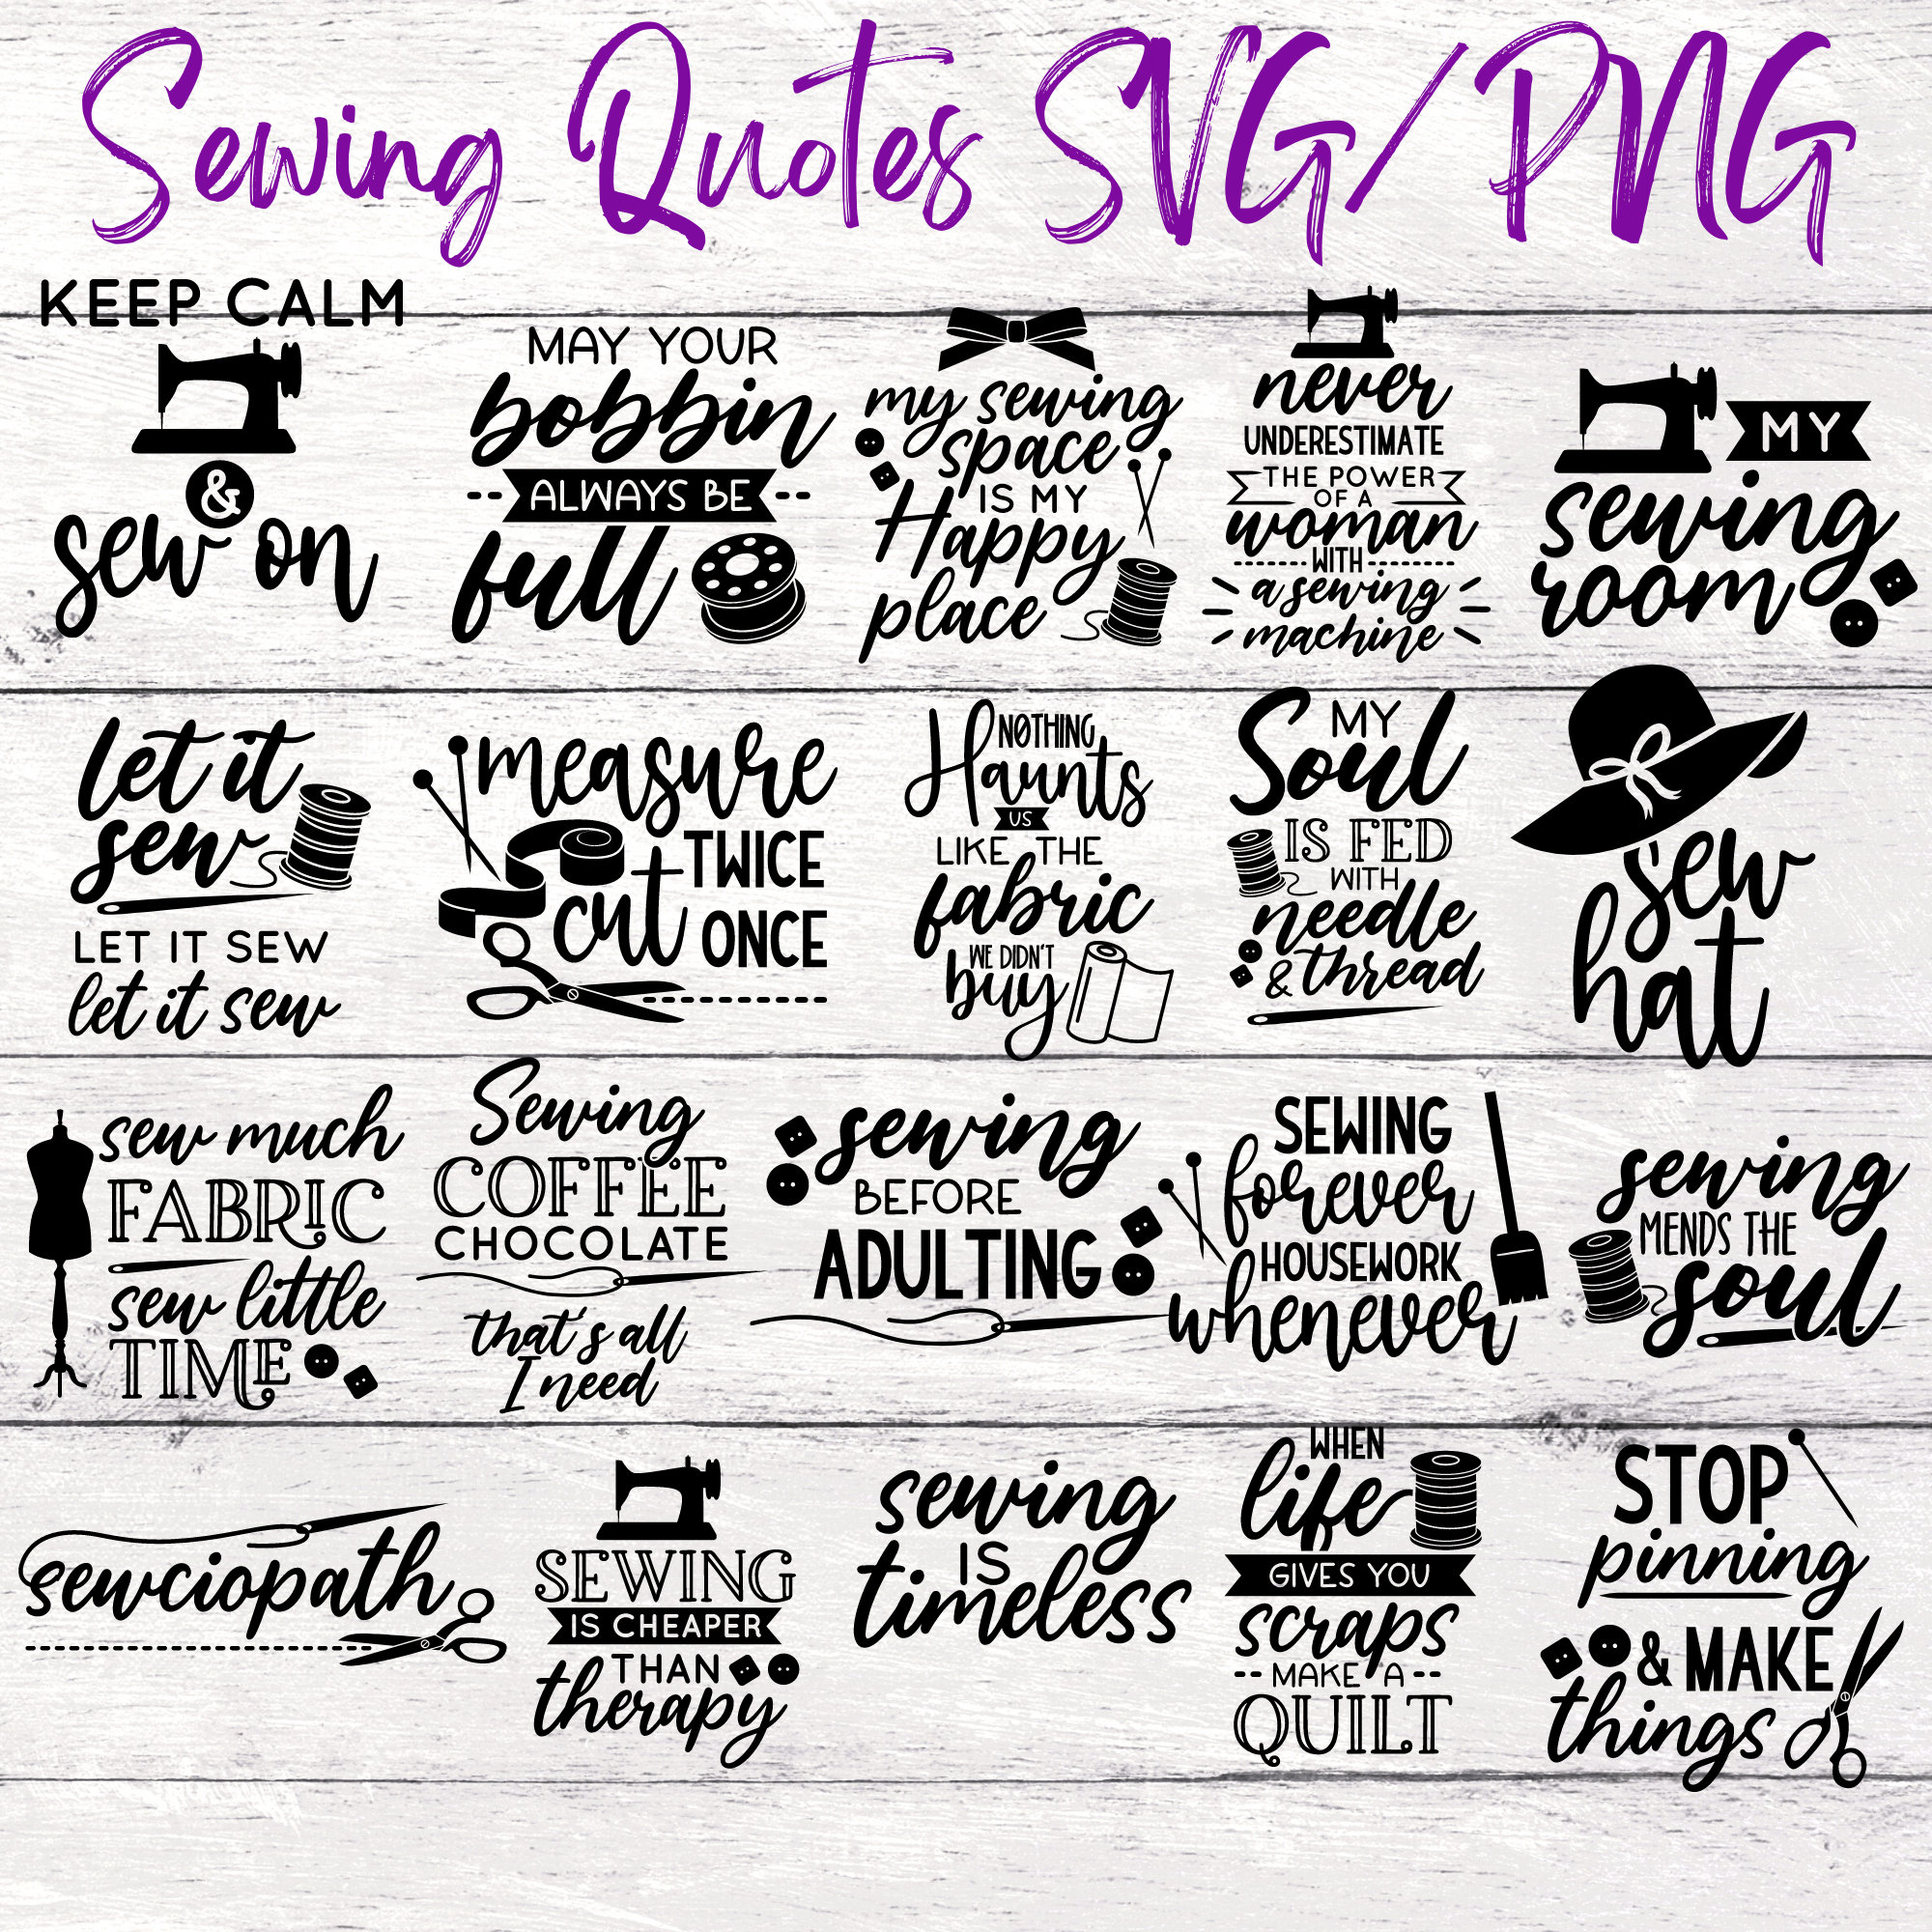 Sewing Quotes SVG/PNG
KEEP CALM
&
sew on
MAY YOUR
bobbin
ALWAYS BE
full
my sewing
space
IS MY
Happy
place
never
UNDERESTIMATE
THE POWER
OF A
woman
WITH
a sewing
machine
MY
sewing
room
let it
sew
LET IT SEW
let it sew
measure
TWICE
cut
ONCE
NOTHING
Haunts
US
LIKE THE
fabric
WE DIDN'T
buy
MY
Soul
IS FED
WITH
needle
& thread
sew
hat
sew much
FABRIC
sew little
TIME
Sewing
COFFEE
CHOCOLATE
that's all
I need
sewing
BEFORE
ADULTING
SEWING
forever
HOUSEWORK
whenever
sewing
MENDS THE
soul
sewciopath
SEWING
IS CHEAPER
THAN
therapy
sewing
IS
timeless
WHEN
life
GIVES YOU
scraps
MAKE A
QUILT
STOP
pinning
& MAKE
things